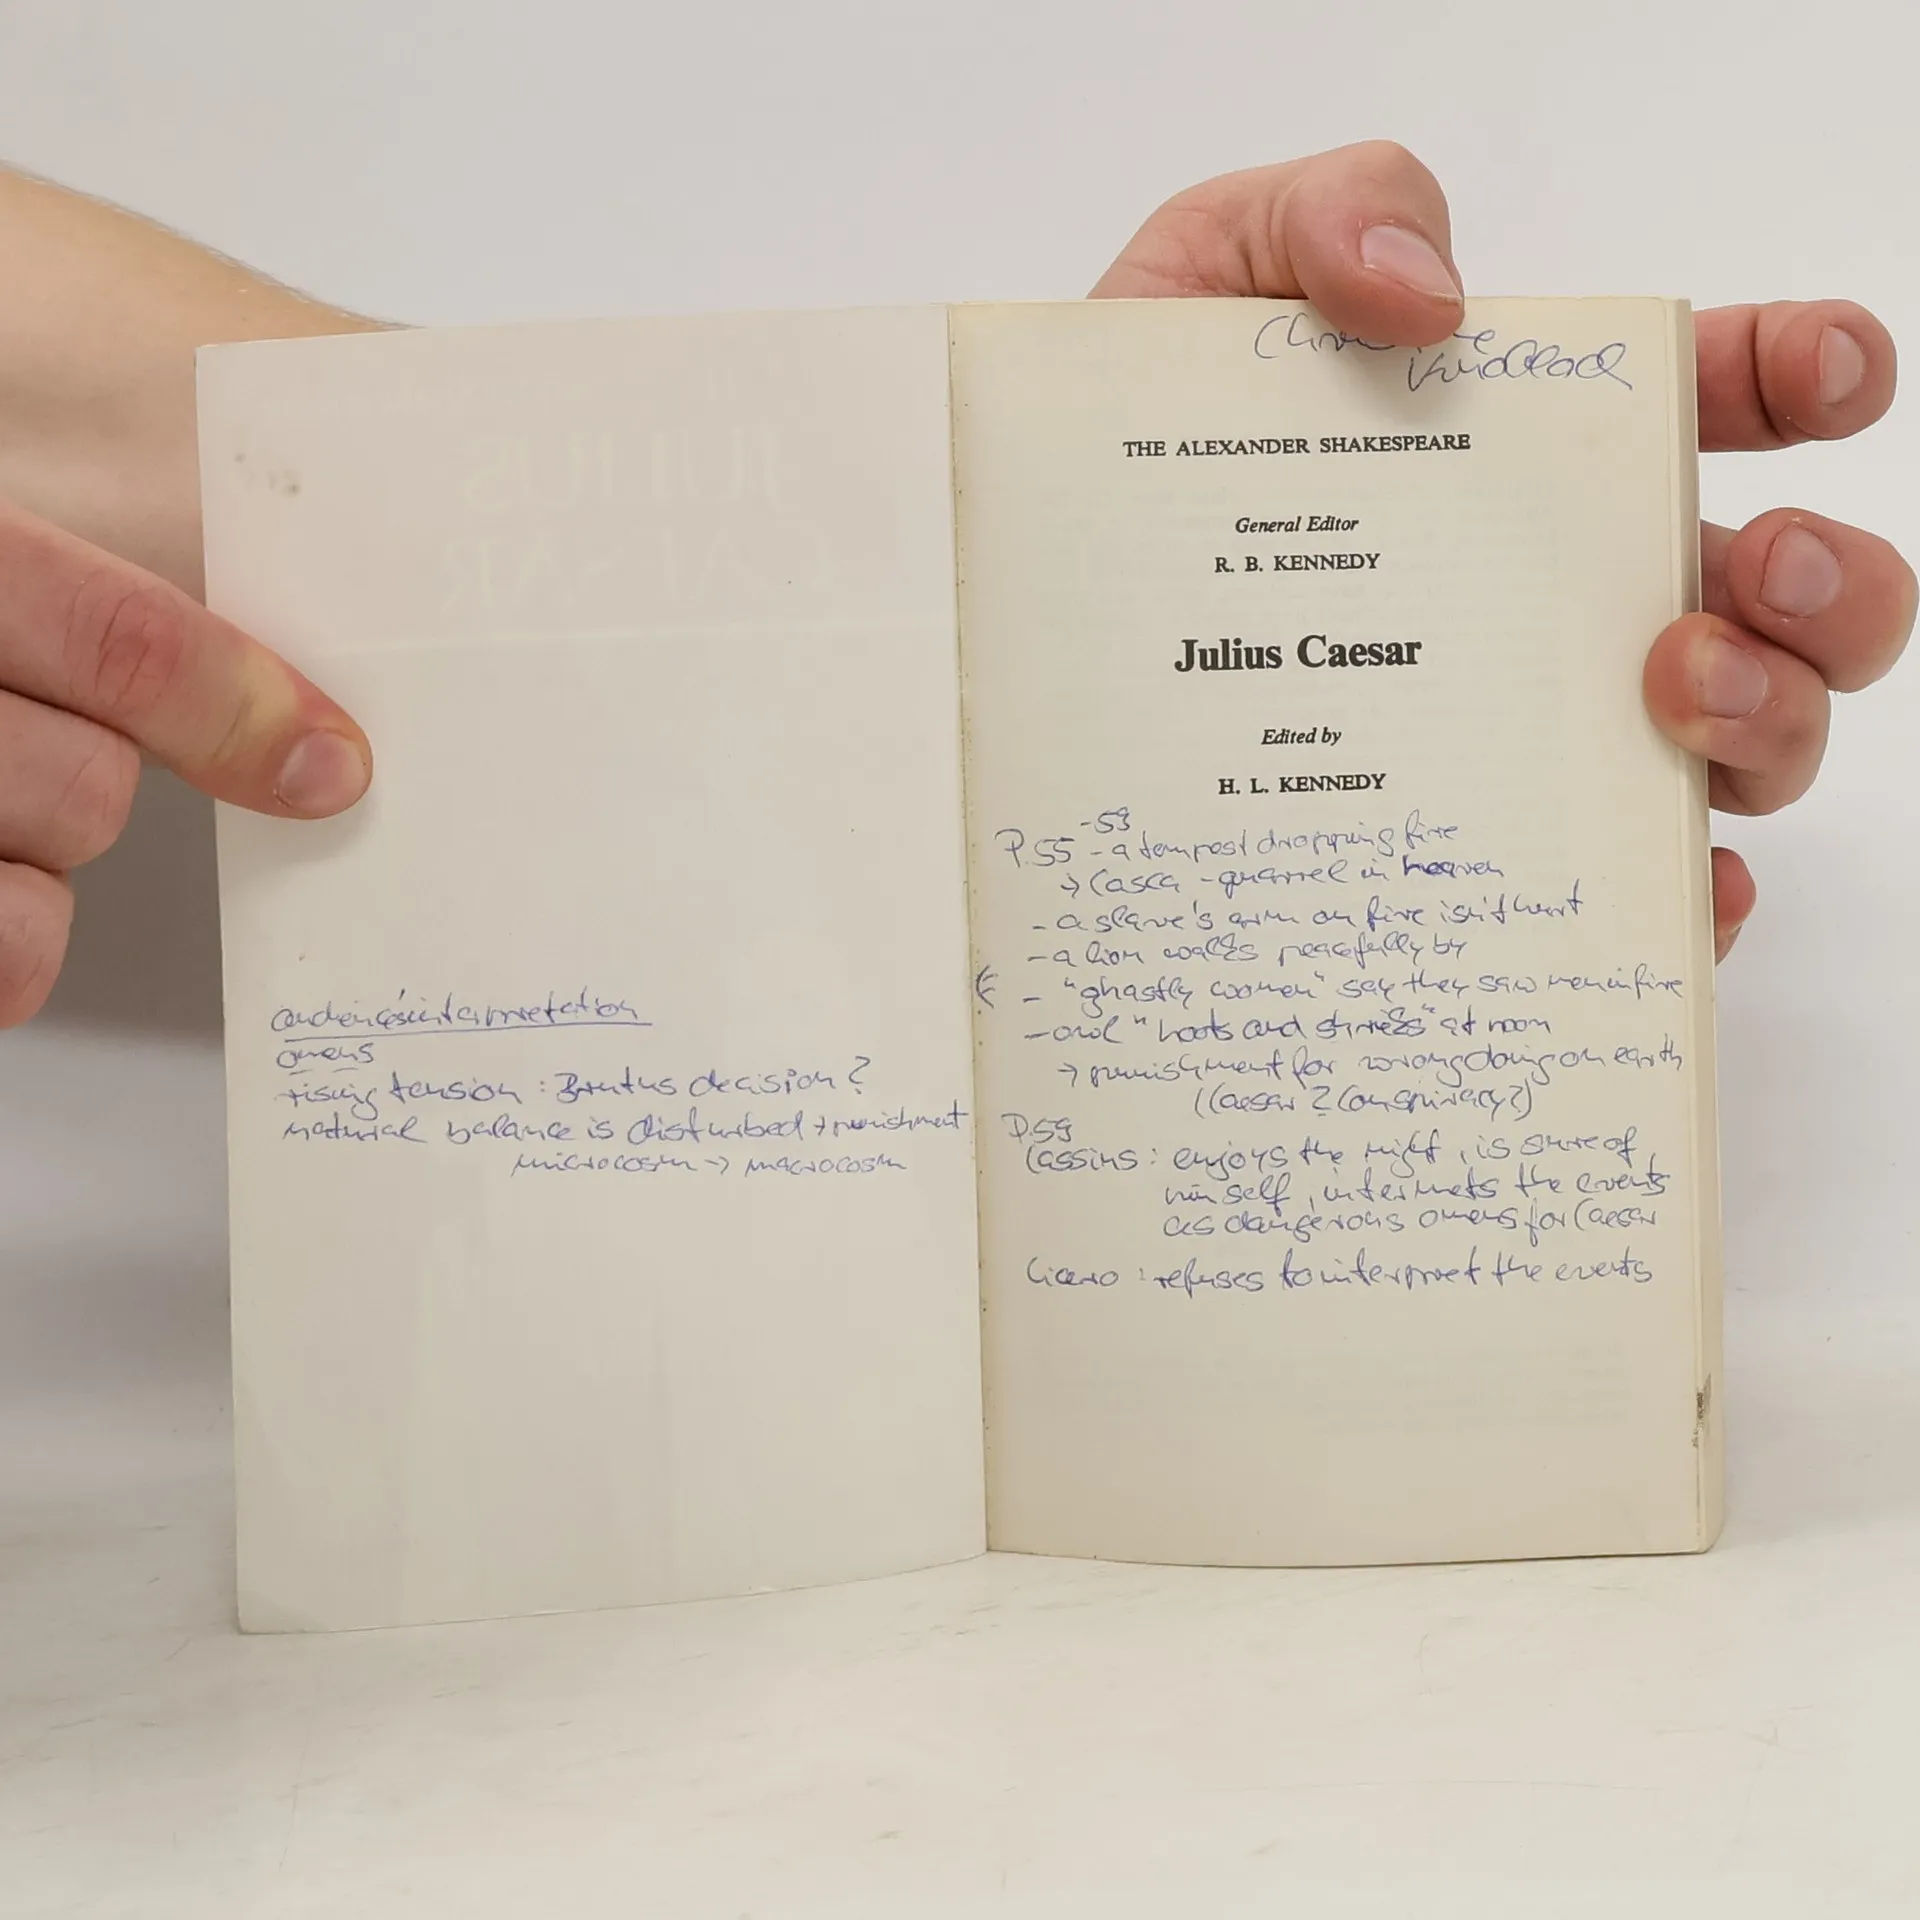 audience's interpretation
omens
rising tension : Brutus decision?
natural balance is disturbed → punishment
microcosm → macrocosm
THE ALEXANDER SHAKESPEARE
General Editor
R. B. KENNEDY
Julius Caesar
Edited by
H. L. KENNEDY
P.55 -59 - a tempest dropping fire
→ Casca - quarrel in heaven
- a slave's arm on fire isn't hurt
- a lion walks peacefully by
- "ghastly women" say they saw men in fire
- owl "hoots and shrieks" at noon
→ punishment for wrongdoing on earth
(Caesar? Conspiracy?)
P.59
Cassius : enjoys the night, is sure of
himself, interprets the events
as dangerous omens for Caesar
Cicero : refuses to interpret the events